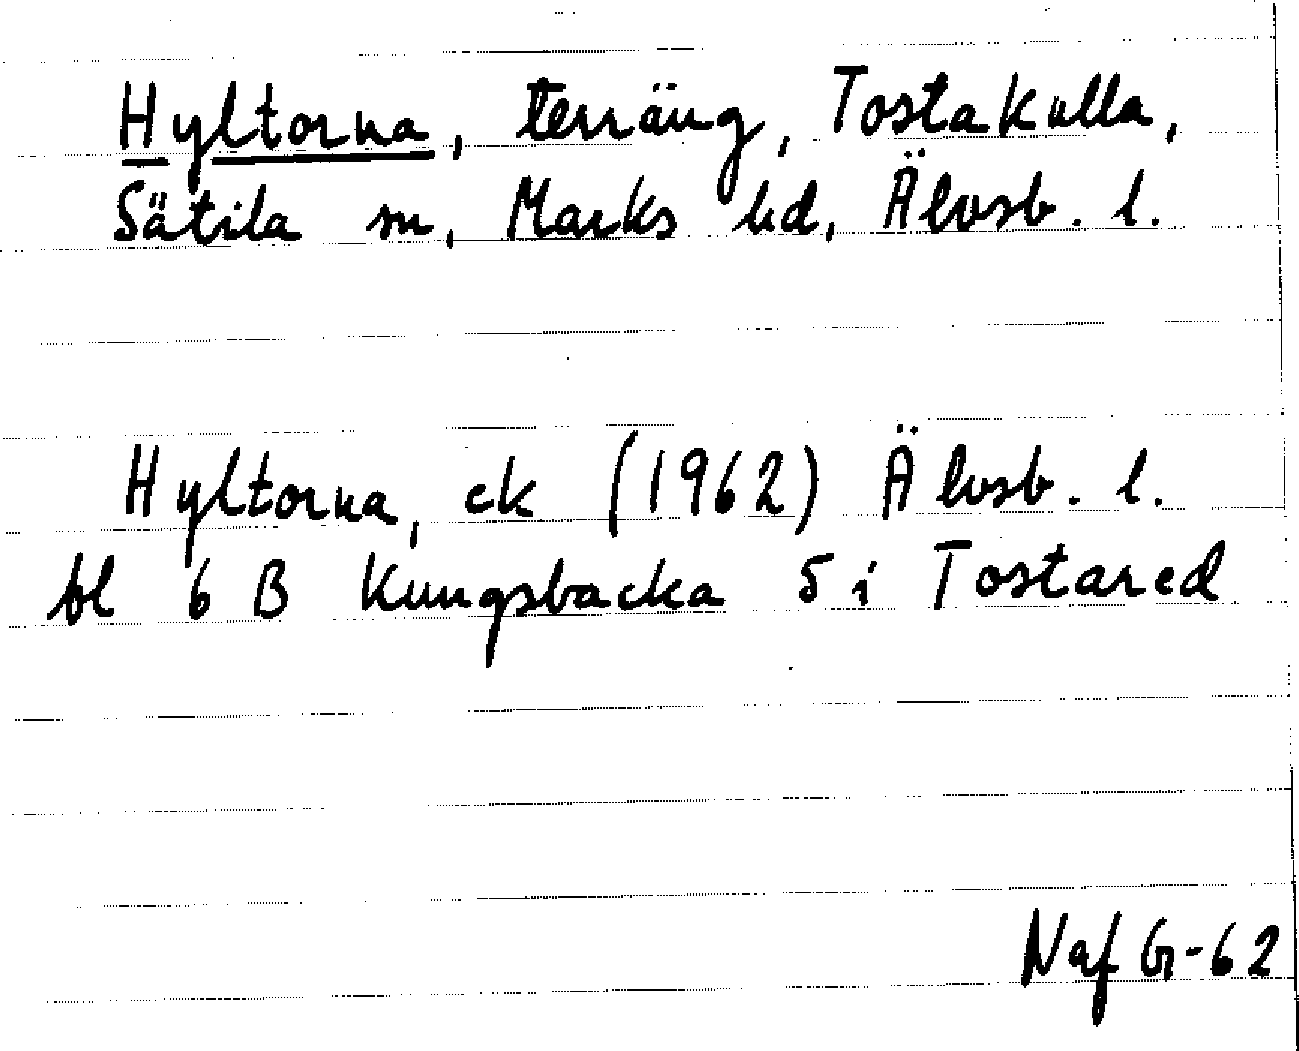 Hyltorna, terräng, Tostakulla,
Sätila sn, Marks hd, Älvsb. l.
Hyltorna, ek (1962) Älvsb. l.
bl 6 B Kungsbacka 5 i Tostared
Naf G-62